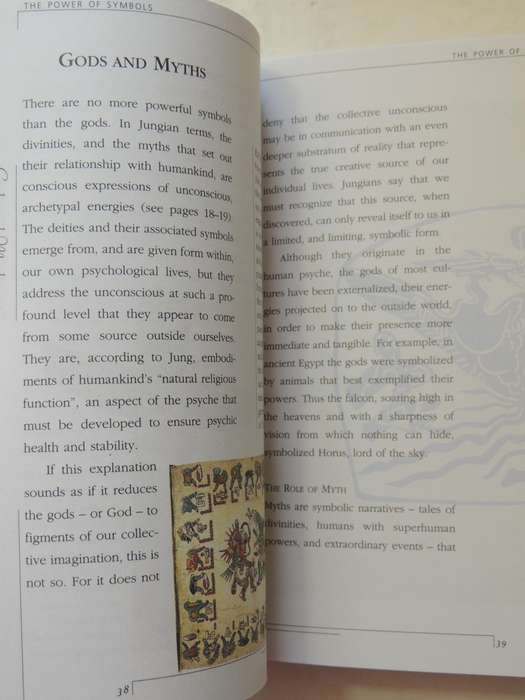 THE POWER OF SYMBOLS
GODS AND MYTHS
There are no more powerful symbols
than the gods. In Jungian terms, the
divinities, and the myths that set out
their relationship with humankind, are
conscious expressions of unconscious,
archetypal energies (see pages 18–19).
The deities and their associated symbols
emerge from, and are given form within,
our own psychological lives, but they
address the unconscious at such a pro-
found level that they appear to come
from some source outside ourselves.
They are, according to Jung, embodi-
ments of humankind's “natural religious
function”, an aspect of the psyche that
must be developed to ensure psychic
health and stability.
If this explanation
sounds as if it reduces
the gods – or God – to
figments of our collec-
tive imagination, this is
not so. For it does not
38
THE POWER OF
deny that the collective unconscious
may be in communication with an even
deeper substratum of reality that repre-
sents the true creative source of our
individual lives. Jungians say that we
must recognize that this source, when
discovered, can only reveal itself to us in
a limited, and limiting, symbolic form.
Although they originate in the
human psyche, the gods of most cul-
tures have been externalized, their ener-
gies projected on to the outside world,
in order to make their presence more
immediate and tangible. For example, in
ancient Egypt the gods were symbolized
by animals that best exemplified their
powers. Thus the falcon, soaring high in
the heavens and with a sharpness of
vision from which nothing can hide,
symbolized Horus, lord of the sky.
THE ROLE OF MYTH
Myths are symbolic narratives – tales of
divinities, humans with superhuman
powers, and extraordinary events – that
39